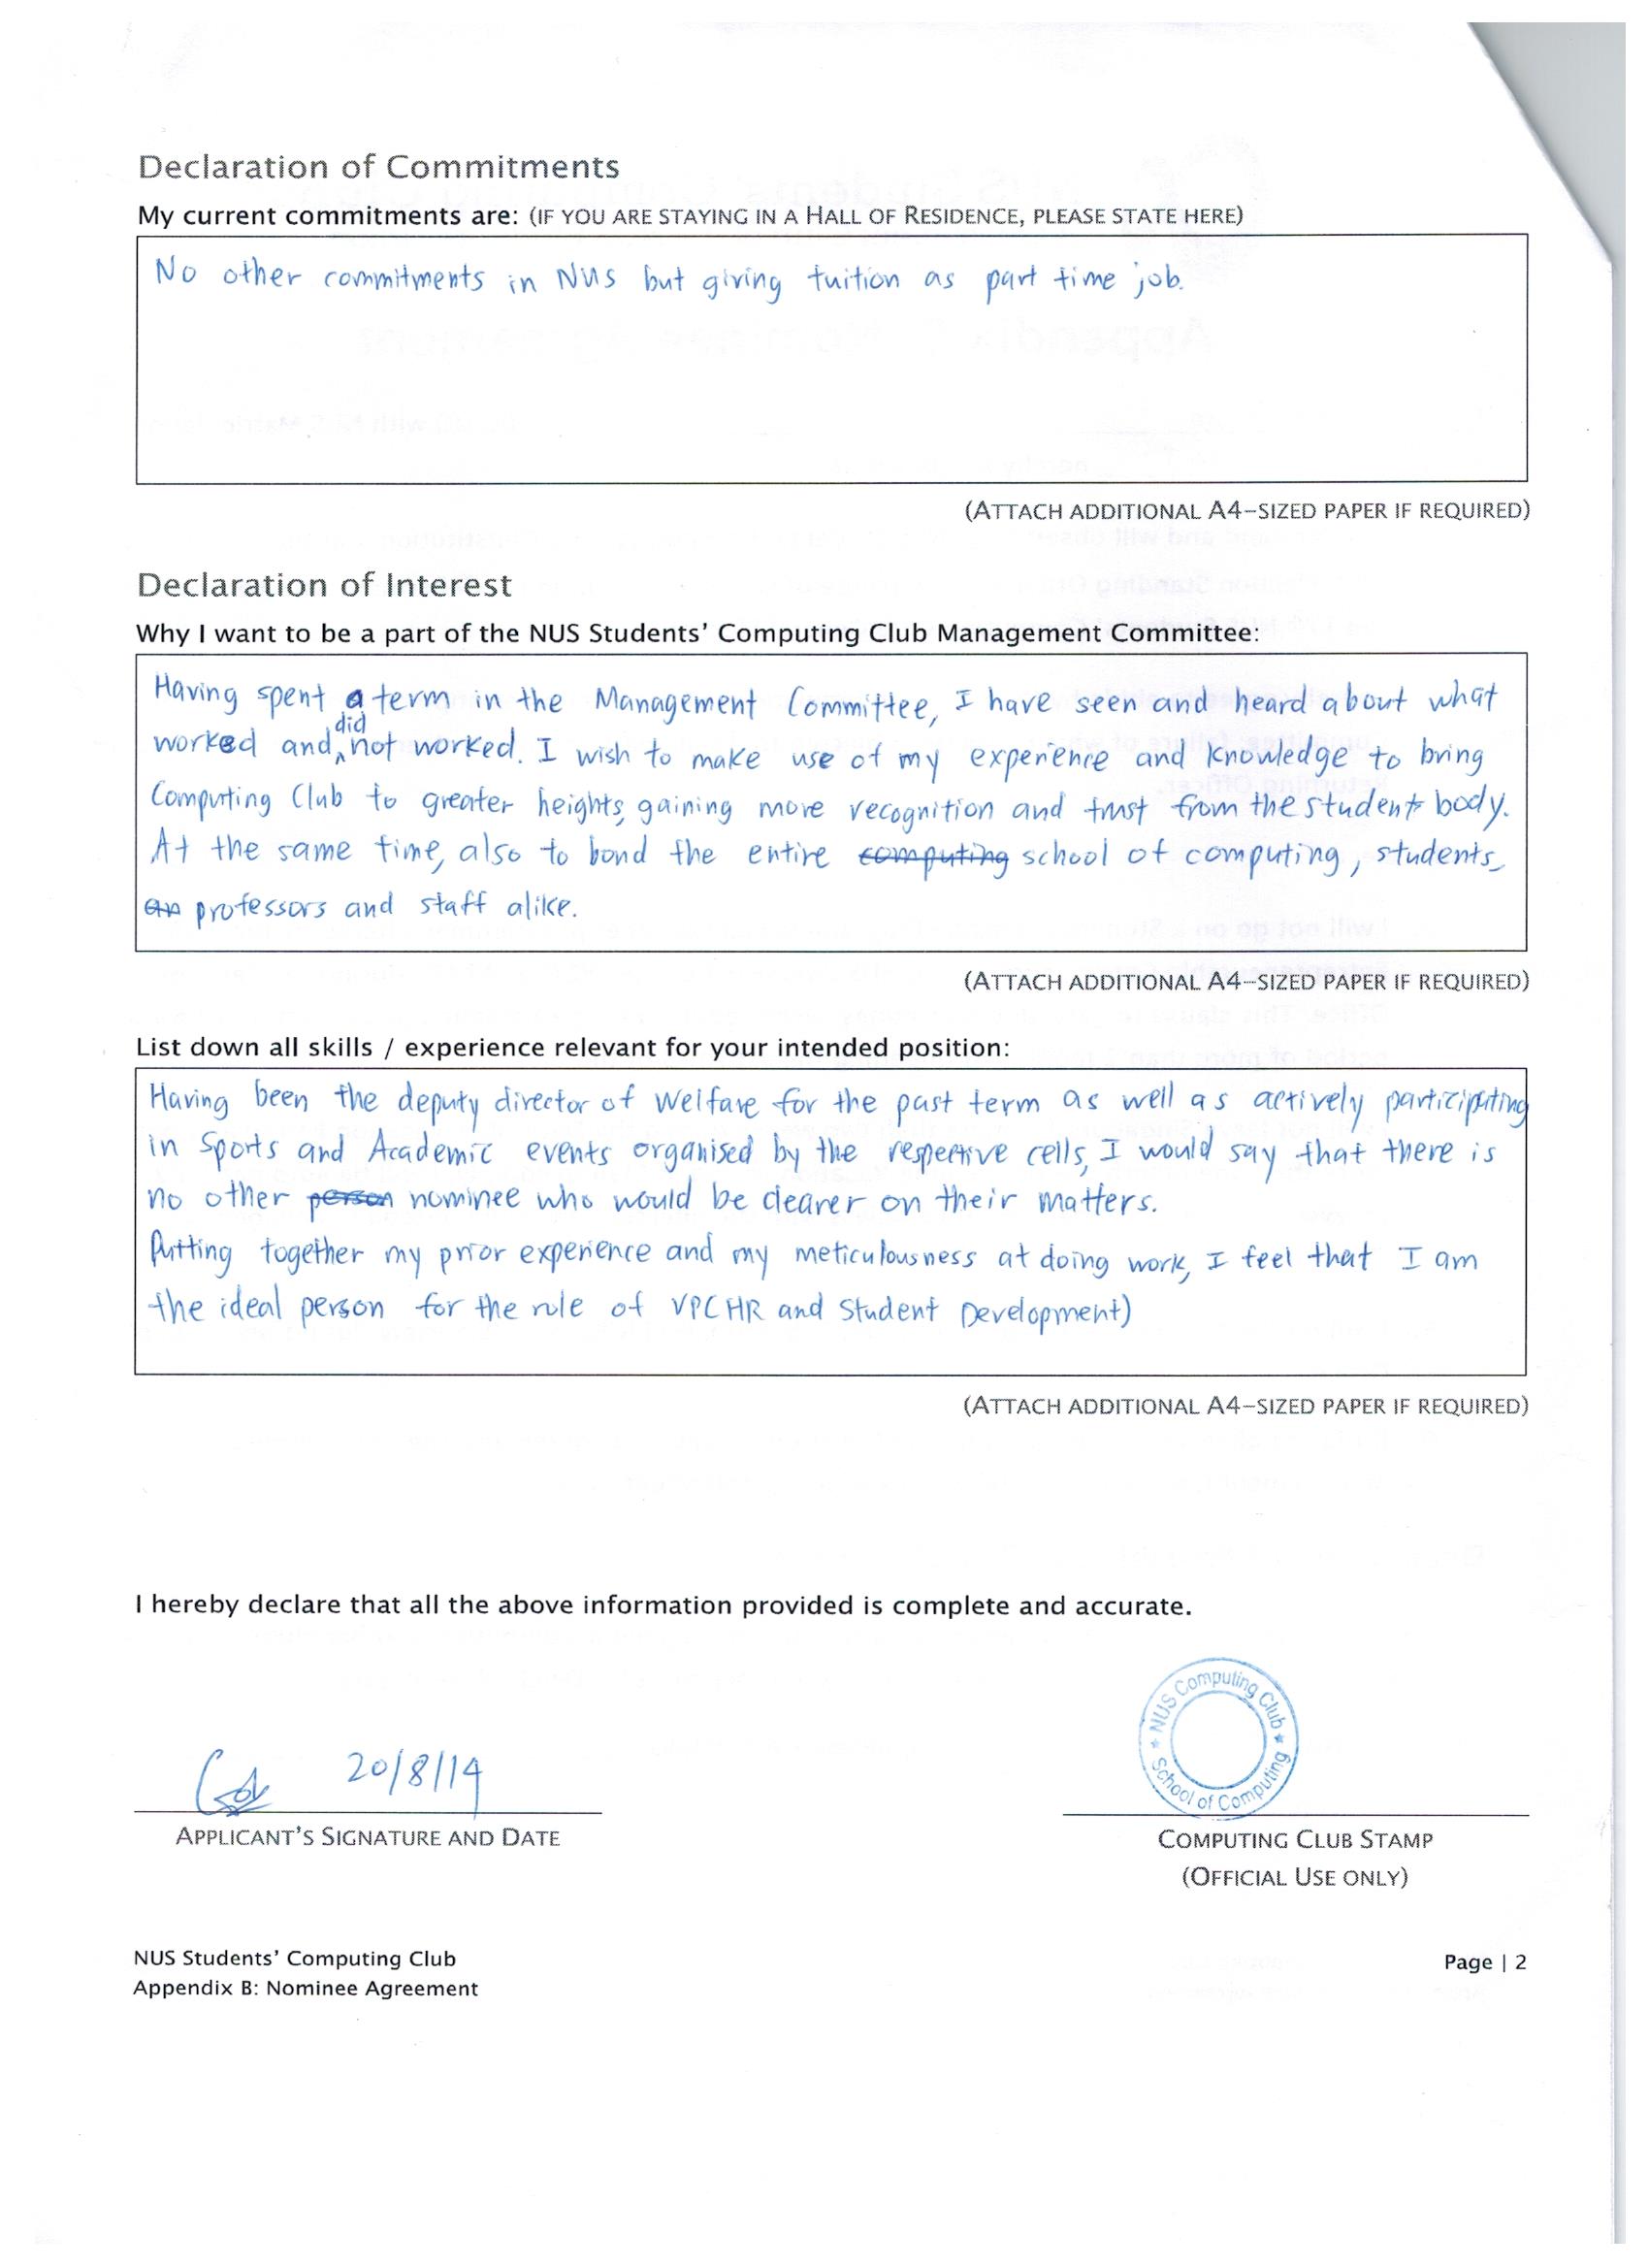 Declaration of Commitments
My current commitments are: (IF YOU ARE STAYING IN A HALL OF RESIDENCE, PLEASE STATE HERE)
No other commitments in NUS but giving tuition as part time job.
(ATTACH ADDITIONAL A4-SIZED PAPER IF REQUIRED)
Declaration of Interest
Why I want to be a part of the NUS Students' Computing Club Management Committee:
Having spent a term in the Management Committee, I have seen and heard about what
worked and did not worked. I wish to make use of my experience and knowledge to bring
Computing Club to greater heights, gaining more recognition and trust from the student body.
At the same time, also to bond the entire computing school of computing, students,
an professors and staff alike.
(ATTACH ADDITIONAL A4-SIZED PAPER IF REQUIRED)
List down all skills / experience relevant for your intended position:
Having been the deputy director of Welfare for the past term as well as actively participating
in Sports and Academic events organised by the respective cells, I would say that there is
no other person nominee who would be clearer on their matters.
Putting together my prior experience and my meticulousness at doing work, I feel that I am
the ideal person for the role of VPCHR and Student Development)
(ATTACH ADDITIONAL A4-SIZED PAPER IF REQUIRED)
I hereby declare that all the above information provided is complete and accurate.
20/8/14
APPLICANT'S SIGNATURE AND DATE
* NUS Computing Club *
School of Computing
COMPUTING CLUB STAMP
(OFFICIAL USE ONLY)
NUS Students' Computing Club
Appendix B: Nominee Agreement
Page | 2